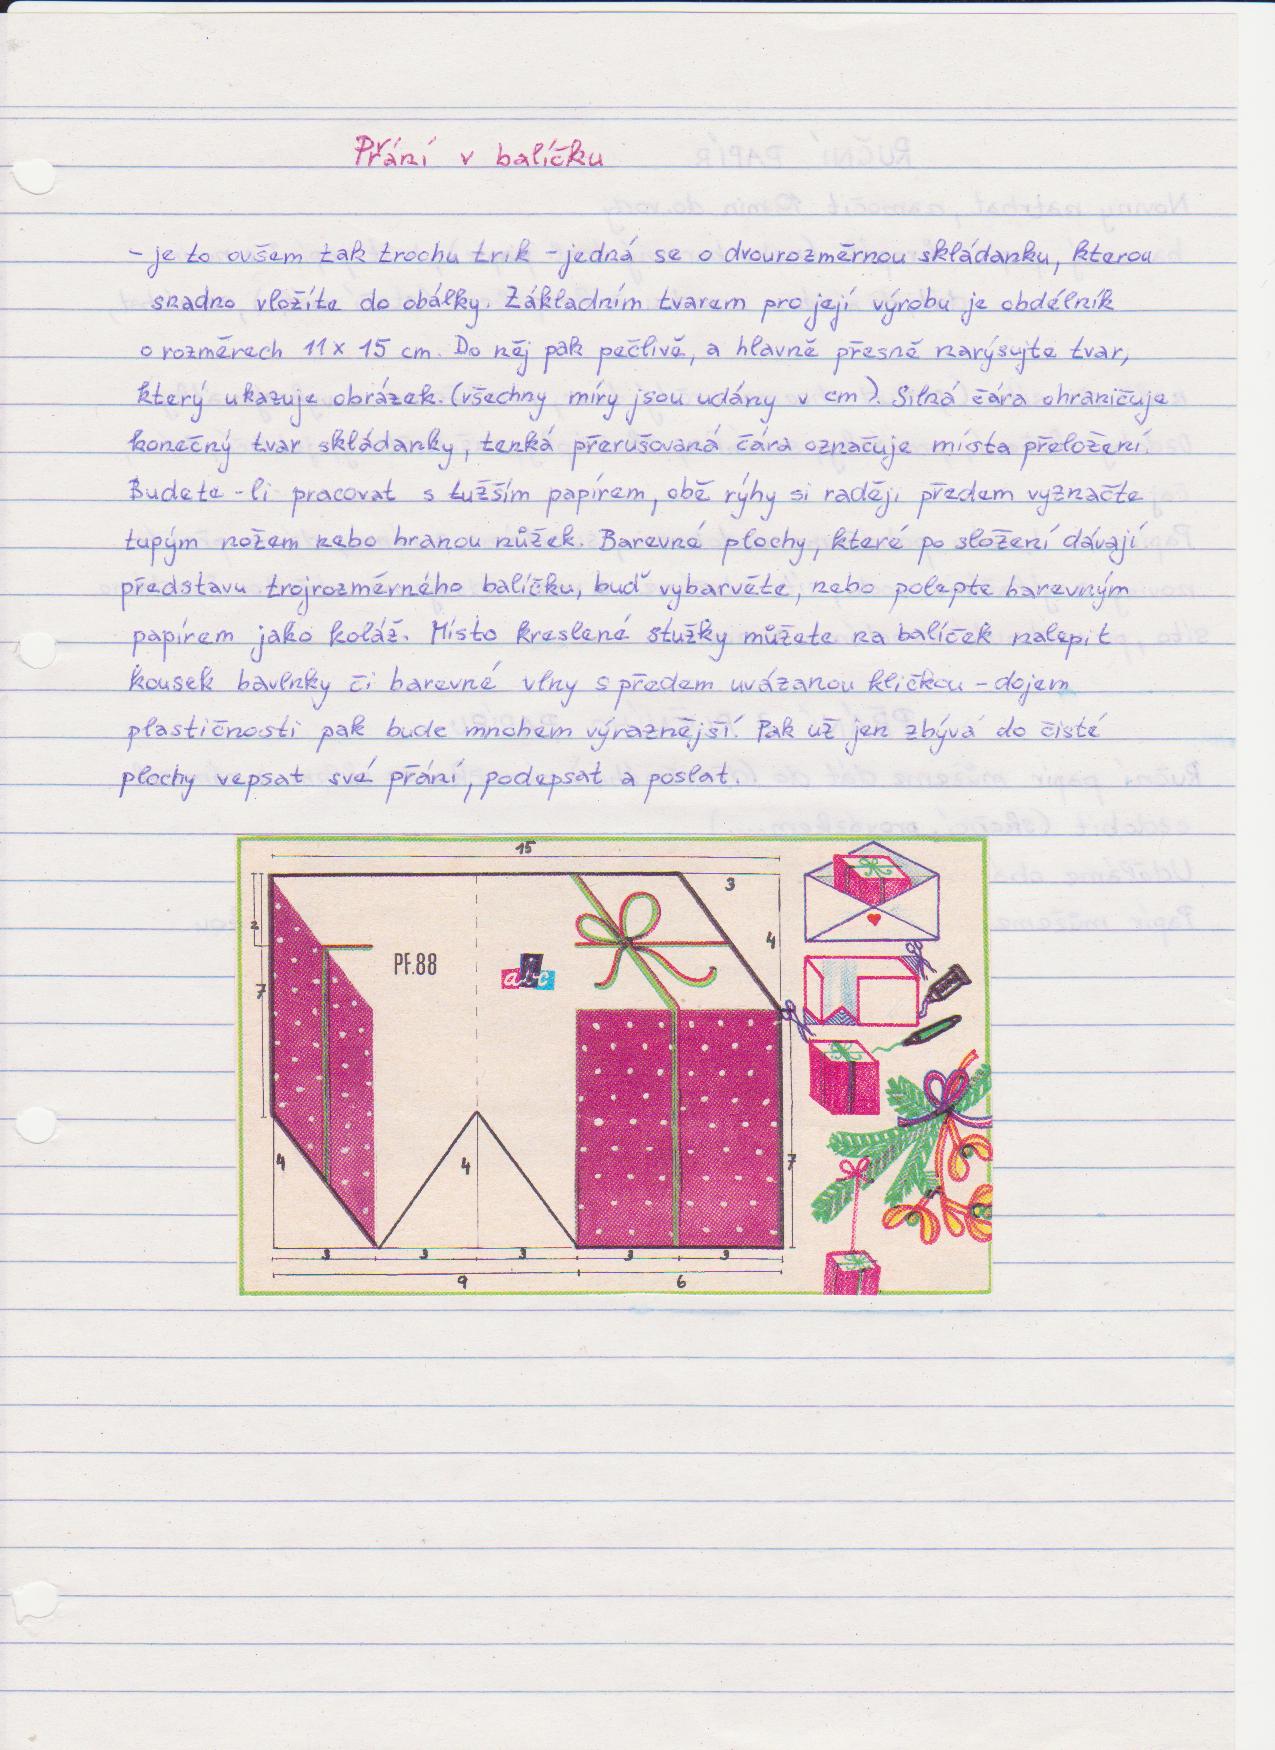 Přání v balíčku
- je to ovšem tak trochu trik - jedná se o dvourozměrnou skládanku, kterou
snadno vložíte do obálky. Základním tvarem pro její výrobu je obdélník
o rozměrech 11 x 15 cm. Do něj pak pečlivě, a hlavně přesně narýsujte tvar,
který ukazuje obrázek. (všechny míry jsou udány v cm). Silná čára ohraničuje
konečný tvar skládanky, tenká přerušovaná čára označuje místa přeložení.
Budete-li pracovat s tužším papírem, obě rýhy si raději předem vyznačte
tupým nožem nebo hranou nůžek. Barevné plochy, které po složení dávají
představu trojrozměrného balíčku, buď vybarvěte, nebo polepte barevným
papírem jako koláž. Místo kreslené stužky můžete na balíček nalepit
kousek bavlnky či barevné vlny s předem uvázanou kličkou - dojem
plastičnosti pak bude mnohem výraznější. Pak už jen zbývá do čisté
plochy vepsat své přání, podepsat a poslat.
15
3
2
4
PF.88
abc
7
4
4
7
3 3 3 3 3
9 6